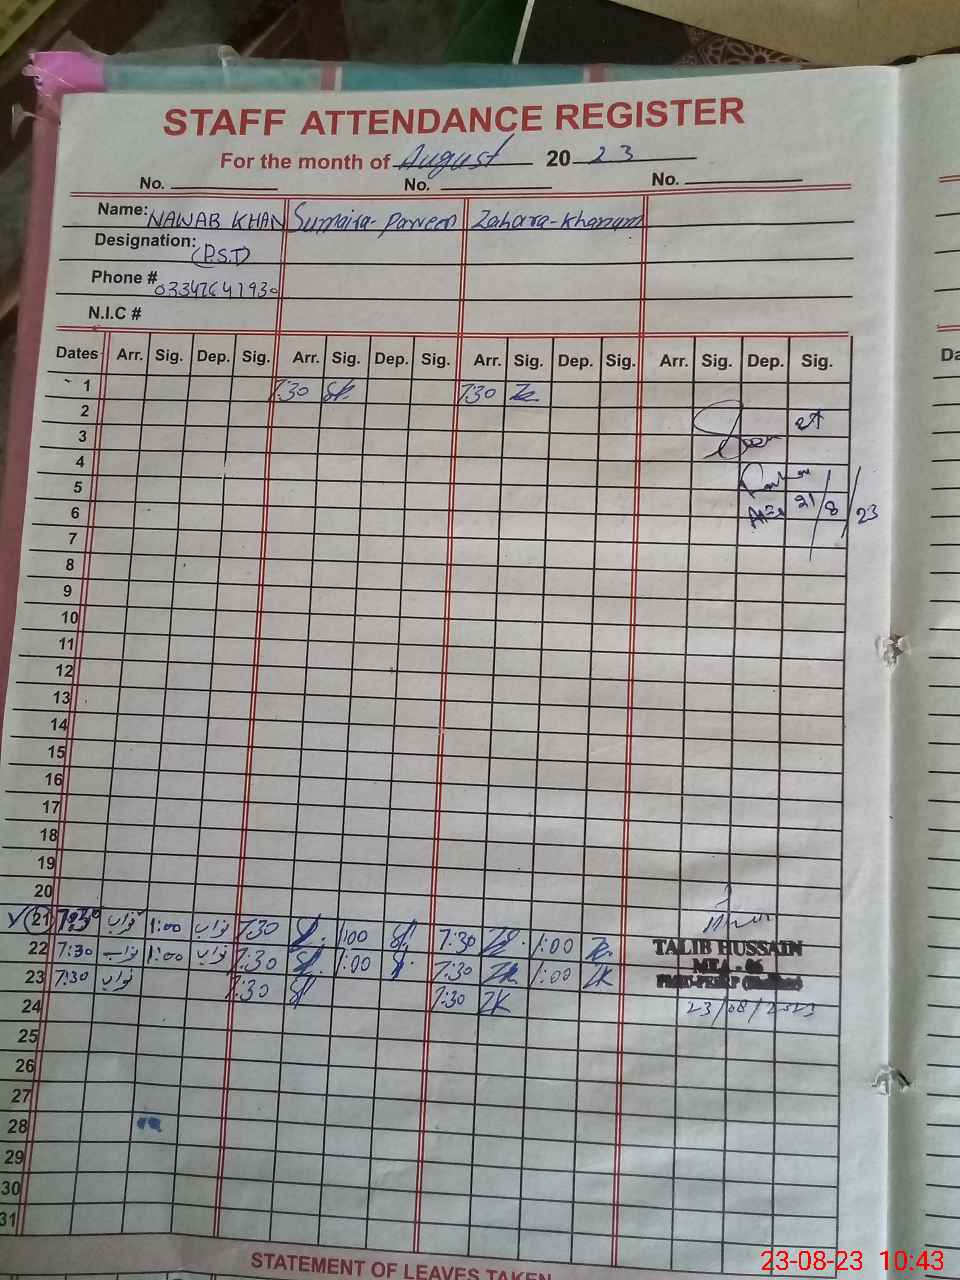 STAFF ATTENDANCE REGISTER
For the month of August 20 23
No. No. No.
Name: NAWAB KHAN Sumaira-Parveen Zahara-Khanum
Designation: (P.S.T)
Phone #
N.I.C #
Dates Arr. Sig. Dep. Sig. Arr. Sig. Dep. Sig. Arr. Sig. Dep. Sig. Arr. Sig. Dep. Sig.
1 7:30 SP. 7:30 ZK
2
3
4
5
6 21/8/23
7
8
9
10
11
12
13
14
15
16
17
18
19
20
21 7:30 نواب 1:00 نواب 7:30 SP. 1:00 SP. 7:30 ZK 1:00 ZK
22 7:30 نواب 1:00 نواب 7:30 SP 1:00 SP. 7:30 ZK 1:00 ZK
TALIB HUSSAIN
MEA - 06
23 7:30 نواب 7:30 SP 7:30 ZK
24
23/08/2023
25
26
27
28
29
30
31
STATEMENT OF LEAVES TAKEN
Da
23-08-23 10:43